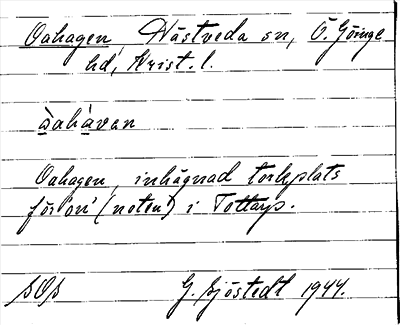 Oahagen Västveda sn, Ö. Göinge
hd, Krist. l.
àahàven
Oahagen, inhägnad torkplats
för on' (noten) i Tottarp.
SOS G. Sjöstedt 1944.